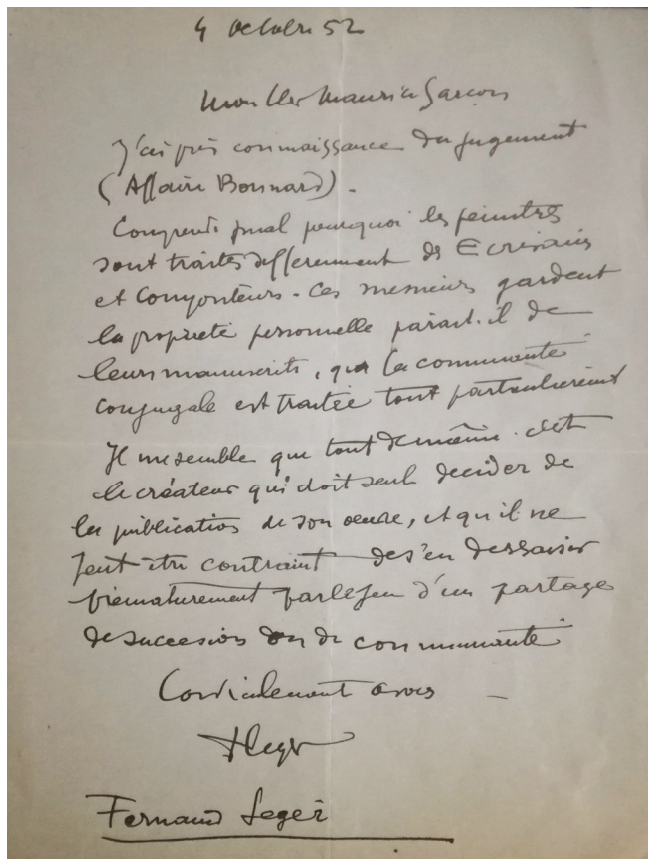 4 octobre 52
Mon cher Maurice Garçon
J'ai pris connaissance du jugement
(Affaire Bonnard).
Comprends mal pourquoi les peintres
sont traités differemment des Ecrivains
et Compositeurs. Ces messieurs gardent
la propriete personnelle parait-il de
leurs manuscrits, que la communauté
conjugale est traitée tout particulierement
Il me semble que tout de même c'est
le créateur qui doit seul decider de
la publication de son oeuvre, et qu'il ne
peut être contraint de s'en dessaisir
prematurement par le jeu d'un partage
de succession ou de communauté
Cordialement a vous
FLeger
Fernand Leger